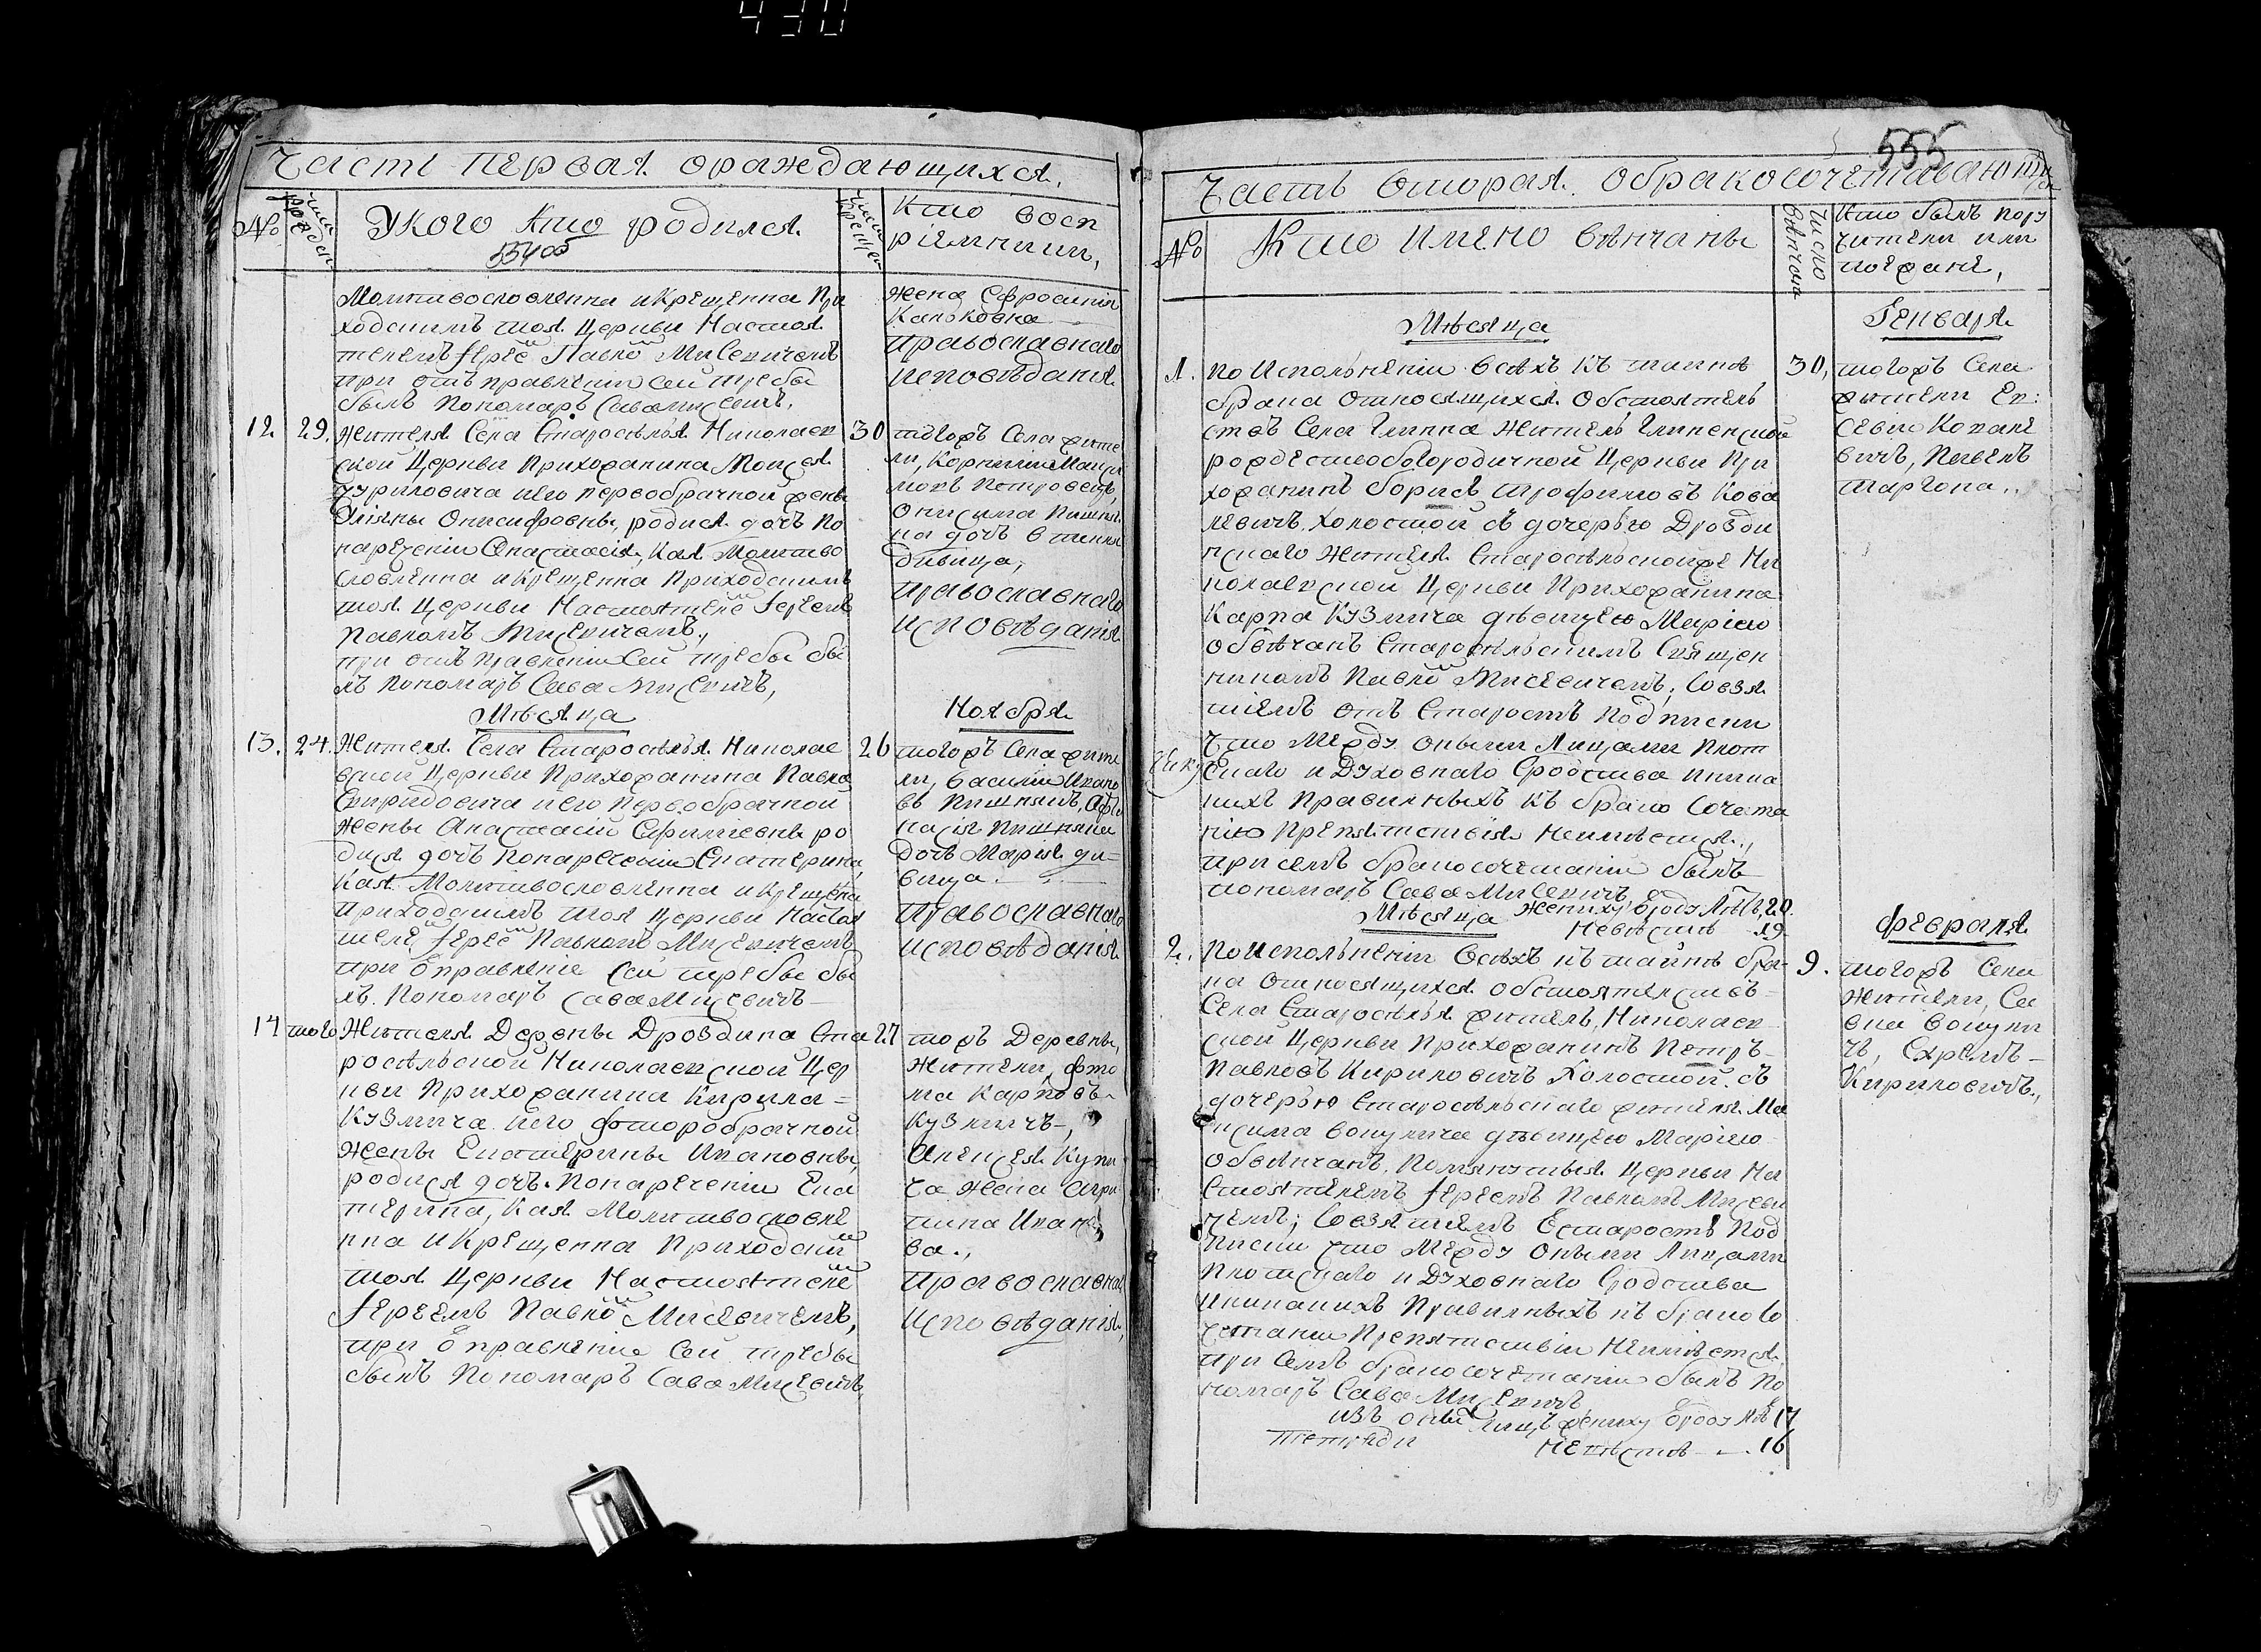 430
Часть первая ораждающихся.
№
Укого кто родился
Кто восп
ріемники,
Молитвословленна икрещенна При
ходскимъ тоя Церкви Настоя
телемъ Іерее Павло Мисевичемъ
при отъправленіи сей требы
былъ Пономаръ Сава Мисевичъ,
жена Ефросинія
православнаго
исповѣданія
12. 29. Жителя Села Старосѣлья Николаев
ской Церкви Прихожанина
иего первобрачной жены
Онисифровны, родися дочъ по
наречении Анастасія, кая Молитво
словленна икрещенна Приходскимъ
тоя Церкви Настоятеле Іереемъ
Павломъ Мисевичемъ,
при отъправленіи Сей требы бы
лъ пономаръ Сава Мисевичъ,
30 тогожъ Села жите
ли,
Онисима
на дочъ
дѣвица,
Православнаго
исповѣданія
Мѣсяца
Ноября
13. 24. Жителя Села Старосѣлья Николае
вской Церкви Прихожанина Павла
Спиридовича иего первобрачной
жены Анастасіи Ефимиевны ро
дися дочъ понаречении Екатерина,
кая Молитвословленна и крещена
Приходскимъ тоя Церкви Настоя
теле Іерее Павломъ Мисевичемъ
при Еправленіе Сей требы бы
лъ Пономаръ Сава Мисевичъ
26 тогожъ Села жите
ли, василій Ивано
въ
дочъ Марія дѣ-
вица
Православнаго
исповѣданія
14 того Жителя Деревны Дроздина Ста
росѣльской Николаевской Цер
кви Прихожанина Кирила=
Кузмича иего фторобрачной
жены Екатерины Ивановны,
родися дочъ. Понаречении Ека
терина, Кая Молитвословле
нна и Крещенна Приходски
тоя Церкви Настоятеле
Іереемъ Павло Мисевичемъ,
при Еправленіе Сей требы
былъ Пономаръ Сава Мисевичъ,
27 тожъ Деревны,
жители, фто
ма Карповъ
Кузмичъ-,
Алексея
ча жена Агри
пина Ивано
ва.,
Православна
исповѣданія,
555
Часть вторая. обракосочетающи
№
Кто имено вѣнчаны
Число вѣнчанія
Кто былъ пору
чители или
поезжане,
Мѣсяца
Генваря
1. по Исполнѣніи всѣхъ къ таинѣ
брака относящихся обстоятель
ствъ Села Глинна Житель Глиненской
рождествобогородичной Церкви При
хожанинъ борисъ трофимовъ Кова
левичъ. Холостой съ дочерью Дрозди
нскаго Жителя Старосѣльскойже Ни
колаевской Церкви Прихожанина
Карпа Кузмича дѣвицею Маріею
обвѣчанъ Старосѣльскимъ Священ
никомъ Павло Мисевичемъ; Совзя
тіемъ отъ Старостъ Подписки
что Между оными Лицами Плот
скаго и Духовнаго Сродства ника
кихъ Правилныхъ къ брако Сочета
нію Препятствія Неимѣется.,
присемъ бракосочетаніи былъ
пономаръ Сава Мисевичъ,
30, тогожъ Села
жители Ев:
сѣвій
вичъ, Павелъ
жениху, Еродулѣтъ, 20.
невѣстѣ 19.
Мѣсяца
Февраля
2. По Исполнѣніи Всѣхъ къ таинѣ бра-
ка относящихся обстоятелствъ-
Села Старосѣлья житель, Николаев
ской Церкви Прихожанинъ Петръ-
Павловъ Кириловичъ Холостой. съ
дочерью Старосѣльскаго жителя Ма
ксима дѣвицею Маріею
обвѣнчанъ. Помянутыя Церкви На
стоятелемъ Іереемъ Павломъ Мисеви
чемъ; Совзятіемъ Естаростъ Под
писки что Между оными Лицами
Плотскаго и Духовнаго Сродства
никакихъ Правилныхъ къ бракосо
четанію Препятствіи Неимѣется,
при Семъ бракосочетаніи былъ По
номаръ Сава Мисевичъ
9. тогожъ Села
Жители, Са
ва
чъ, Ехремъ-
Кириловичъ.,
изъ оны лицъ жениху Ероду лѣ 17
невѣстѣ 16